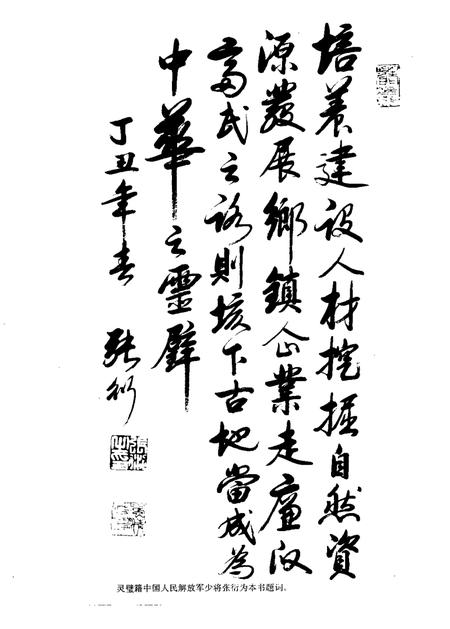 培养建设人材挖掘自然资
源發展鄉鎮企業走廉政
富民之路則垓下古地當成為
中華之靈璧
丁丑年春
張衍
灵璧籍中国人民解放军少将张衍为本书题词。